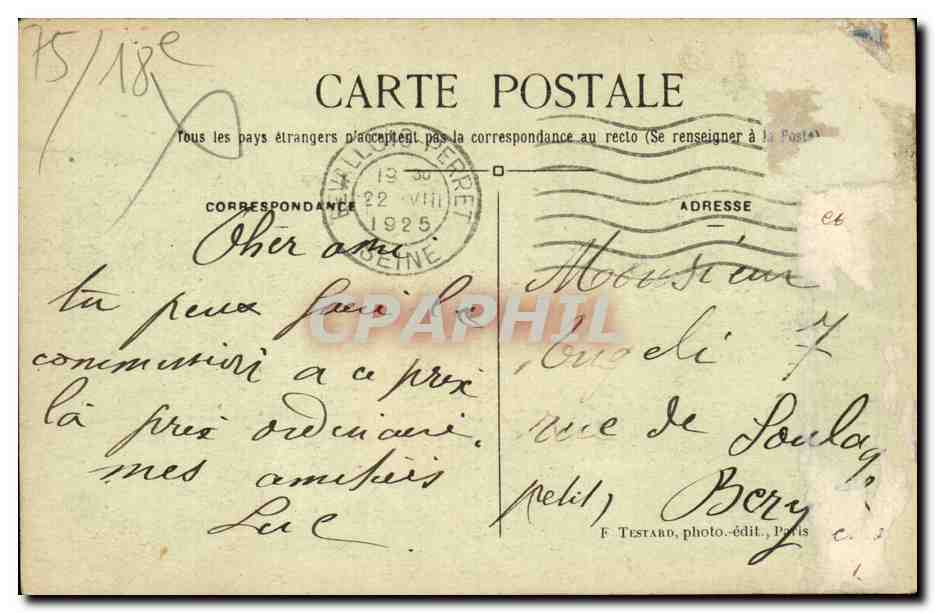 75/18e
CARTE POSTALE
Tous les pays étrangers n'acceptent pas la correspondance au recto (Se renseigner à la Poste)
LEVALLOIS PERRET
19 30
22 VIII
1925
SEINE
CORRESPONDANCE
ADRESSE
Cher ami
tu peux faire la
commission a ce prix
là prix ordinaire.
mes amitiés
Luc
Monsieur
Angeli 7
rue de Soulag
petit, Bercy
F TESTARD, photo.-édit., Paris
CPAPHIL